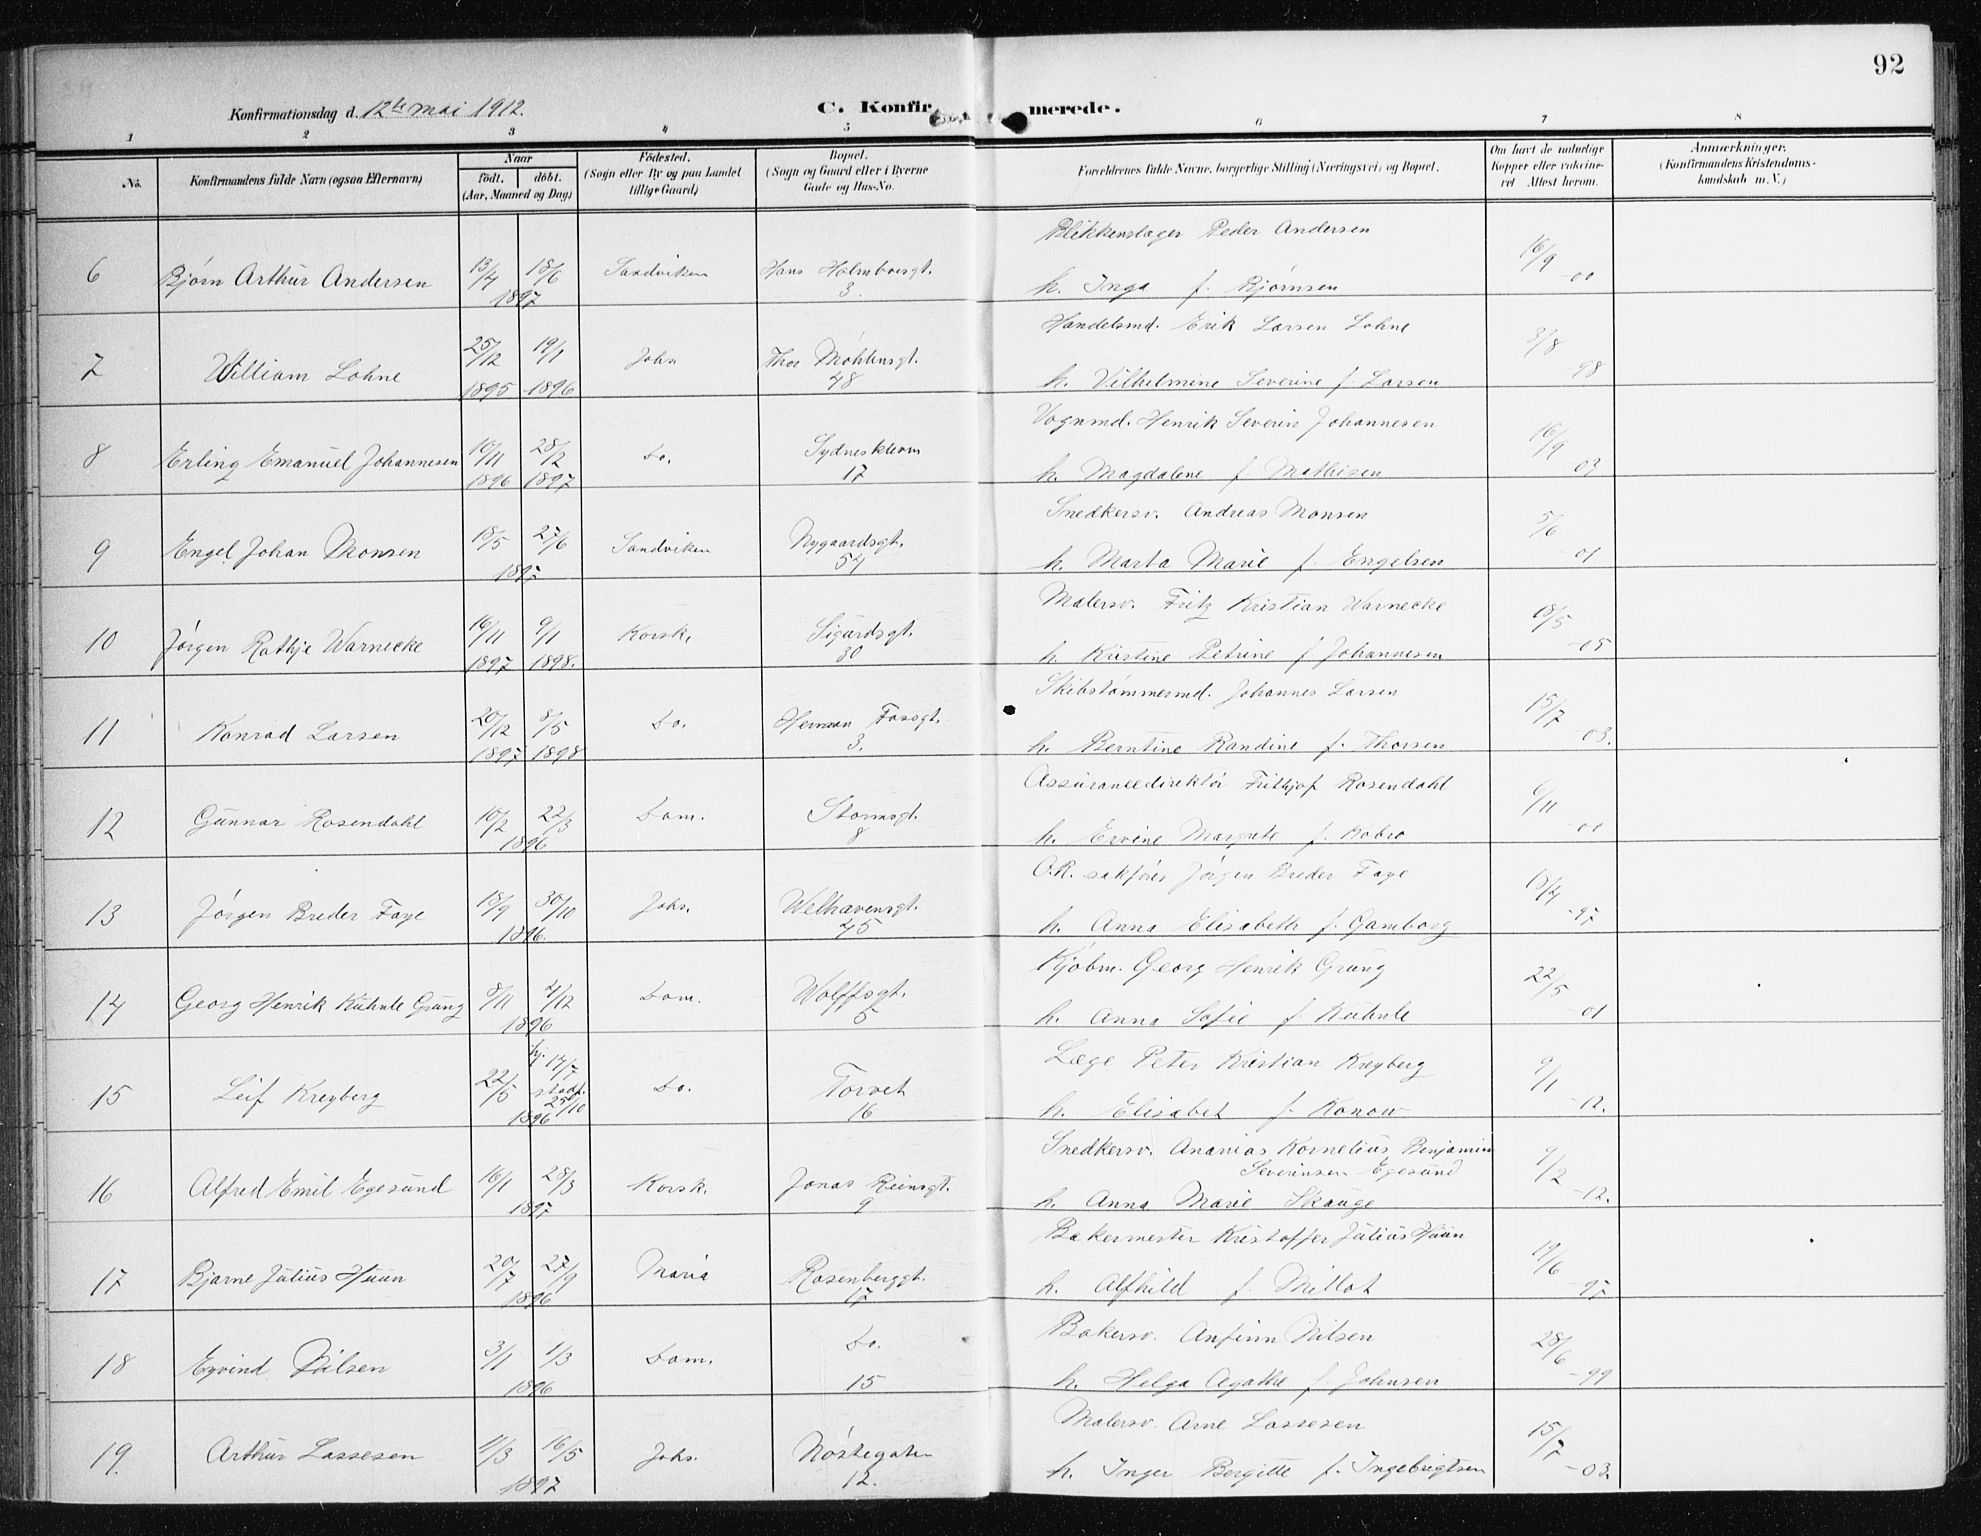 92
Konfirmationsdag d. 12te mai 1912.
C. Konfirmerede.
1 2 3 4 5 6 7 8
No. Konfirmandens fulde Navn (ogsaa Efternavn) Naar født. døbt. (Aar, Maaned og Dag) Fødested. (Sogn eller By og paa Landet tillige Gaard) Bopæl. (Sogn og Gaard eller i Byerne Gade og Hus-No. Forældrenes fulde Navne, borgerlige Stilling (Næringsvei) og Bopæl. Om havt de naturlige Kopper eller vaccineret. Attest herom. Anmærkninger. (Konfirmandens Kristendomskundskab m. V.)
6 Bjørn Arthur Andersen 13/4 18/6 1897 Sandviken Hans Holmboesgt. 3. Blikkenslager Peder Andersen
h. Inga f. Bjørnsen 16/9 -00
7 William Lohne 25/12 1895 19/1 1896 Johs Thor Møhlensgt. 48 Handelsmd. Erik Larsen Lohne
h. Vilhelmine Severine f. Larsen 3/8 -98
8 Erling Emanuel Johannesen 10/11 1896 28/2 1897 Do. Sydneskleven 17 Vognmd. Henrik Severin Johannesen
h. Magdalene f. Mathisen 16/9 -03
9 Engel Johan Monsen 18/5 27/6 1897 Sandviken Nygaardsgt. 54 Snedkersv. Andreas Monsen
h. Marta Marie f. Engelsen 5/6 -01
10 Jørgen Rathje Warnecke 16/11 1897 9/1 1898. Korsk. Sigurdsgt. 30 Malersv. Fritz Kristian Warnecke
h. Kristine Petrine f. Johannesen 18/5 -05
11 Konrad Larsen 20/12 1897 8/5 1898 Do. Herman Fossgt. 3. Skibstømmermd. Johannes Larsen
h. Berntine Randine f. Thorsen 15/7 -03.
12 Gunnar Rosendahl 10/2 22/3 1896 Dom. Stormsgt. 8 Assurancedirektør Frithjof Rosendahl
h. Ervine Margrete f. Kobro 6/11 -00
13 Jørgen Breder Faye 18/9 30/10 1896. Johs. Welhavensgt. 45 O.R. sakfører Jørgen Breder Faye
h. Anna Elisabeth f. Gamborg 18/4 -97
14 Georg Henrik Kuhnle Grung 8/11 4/12 1896 Dom. Wolffsgt. 5 Kjøbm. Georg Henrik Grung
h. Anna Sofie f. Kuhnle 22/5 -01
15 Leif Kreyberg 22/5 hj. 14/7 stadf. 25/10 1896 Do. Torvet 16 Læge Peter Kristian Kreyberg
h. Elisabet f. Konow 9/1 -12.
16 Alfred Emil Egesund 16/1 28/3 1897 Korsk. Jonas Reinsgt. 9 Snedkersv. Ananias Kornelius Benjamin Severinsen Egesund
h. Anna Marie Skauge 9/2 -12.
17 Bjarne Julius Huun 20/7 27/9 1896 Maria Rosenberggt. 17 Bakermester Kristoffer Julius Huun
h. Alfhild f. Millot 19/6 -97
18 Eyvind Nilsen 3/1 1/3 1896 Dom. Do. 15 Bakersv. Anfinn Nilsen
h. Helga Agathe f. Johnsen 28/6 -99
19. Arthur Lassesen 11/3 16/5 1897 Johs. Nøstegaten 12. Malersv. Arne Lassesen
h. Inger Bergitte f. Ingebrigtsen 15/7 -03.